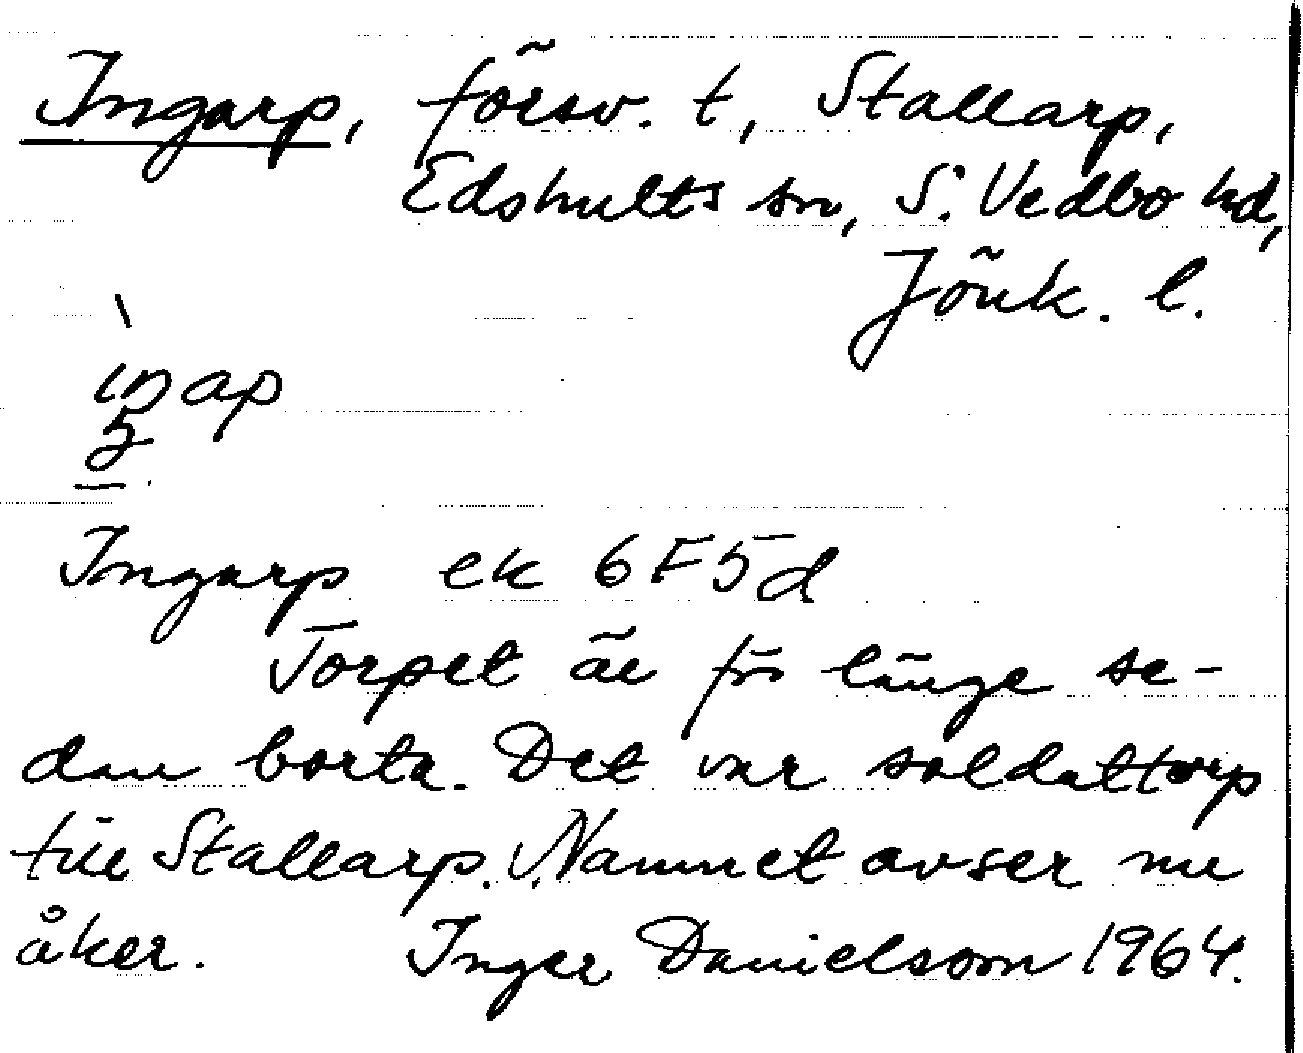 Ingarp, försv. t, Stallarp,
Edshults sn, S. Vedbo hd,
Jönk. l.
ìŋap
5
Ingarp ek 6F5d
Torpet är för länge se-
dan borta. Det var soldattorp
till Stallarp. Namnet avser nu
åker. Inger Danielsson 1964.